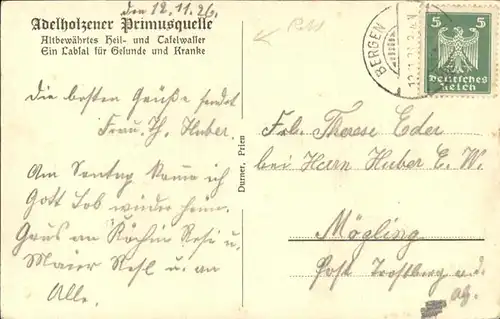 den 12.11.26.
Adelholzener Primusquelle
Altbewährtes Heil- und Tafelwasser
Ein Labsal für Gesunde und Kranke
Die besten Grüße sendet
Frau Th. Huber.
Am Sontag komme ich
Gott Lob wieder heim.
Grus an Köchin Resi u.
Maier Resl u. an
Alle.
Durner, Prien
BERGEN
5 5
Deutsches
Reich
Frl. Therese Eder
bei Herrn Huber E. W.
Mögling
Post Trostberg a. d.
Alz.